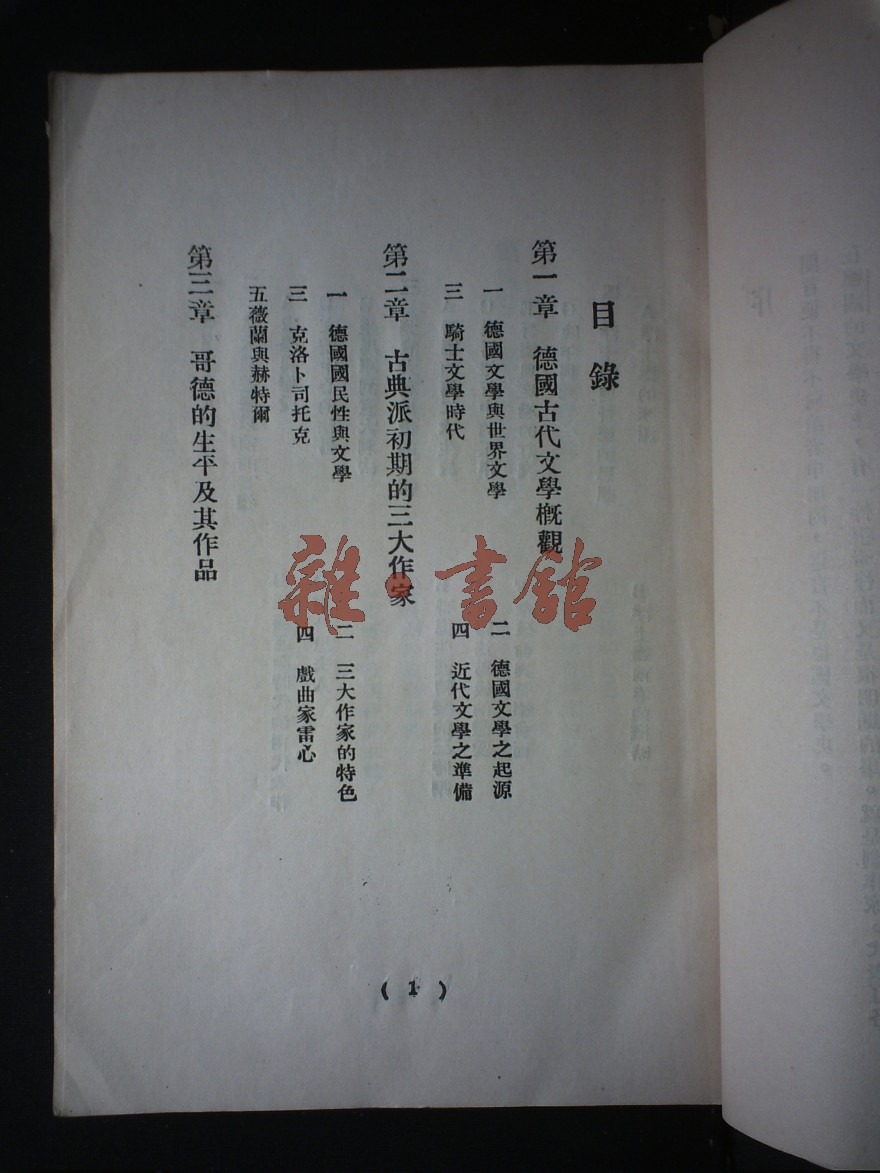 目錄
第一章 德國古代文學概觀
一 德國文學與世界文學 二 德國文學之起源
三 騎士文學時代 四 近代文學之準備
第二章 古典派初期的三大作家
一 德國國民性與文學 二 三大作家的特色
三 克洛卜司托克 四 戲曲家雷心
五薇蘭與赫特爾
第三章 哥德的生平及其作品
( 1 )
雜·書館
序